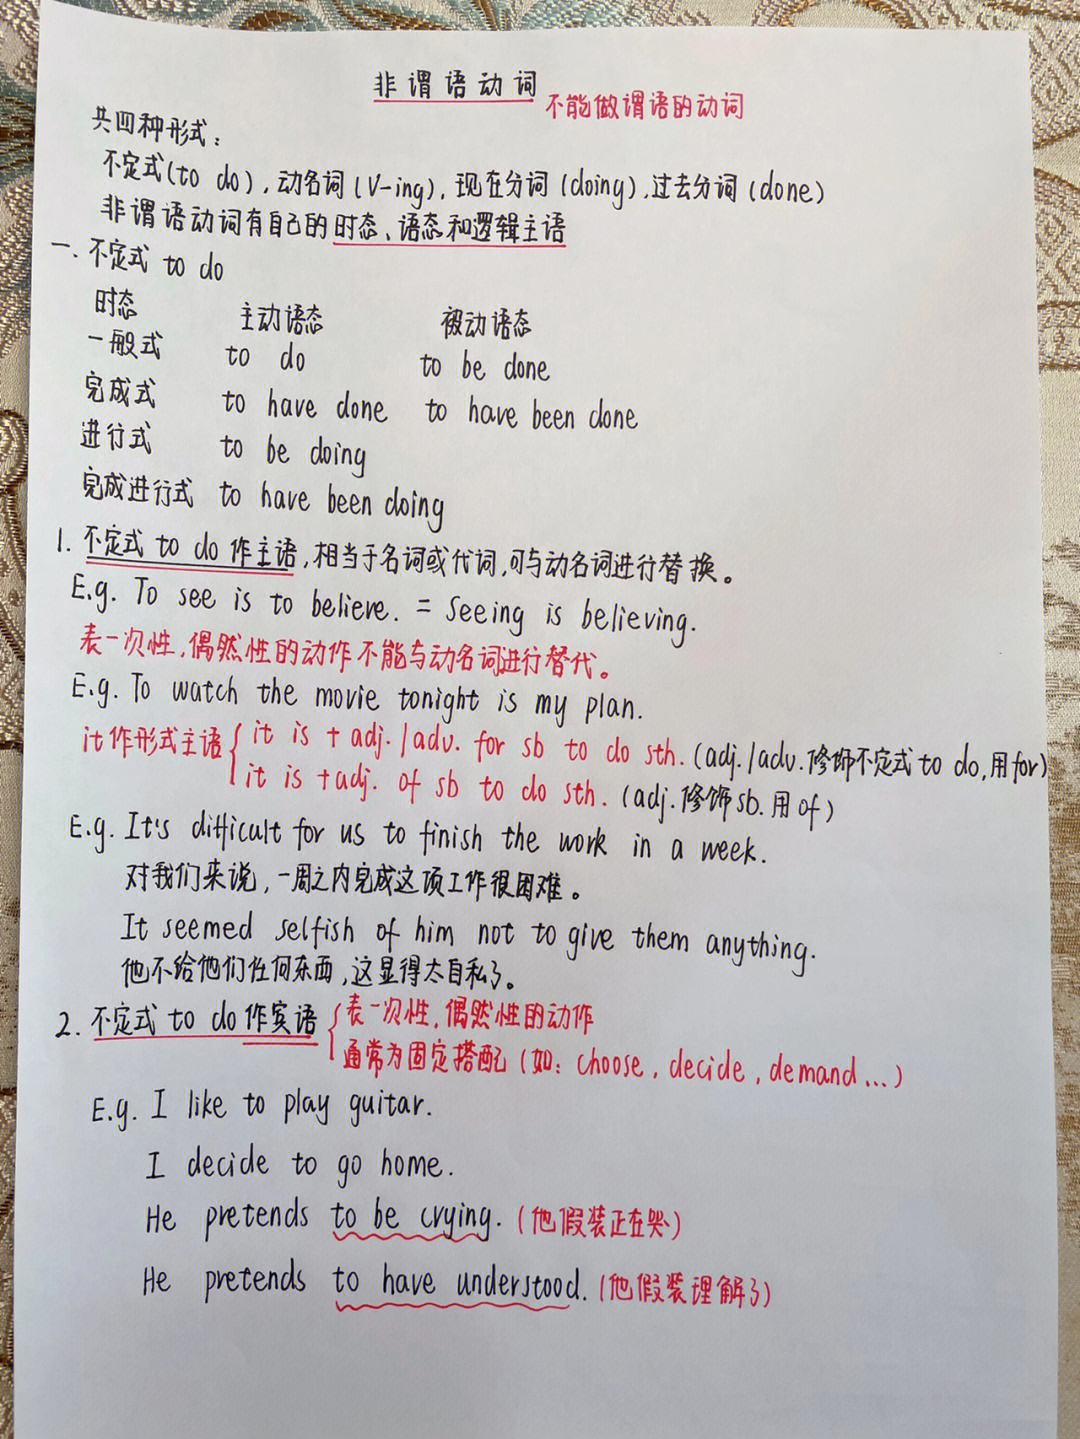 非谓语动词 不能做谓语的动词
共四种形式：
不定式(to do)，动名词(V-ing)，现在分词(doing)，过去分词(done)
非谓语动词有自己的时态、语态和逻辑主语
一、不定式 to do
时态 主动语态 被动语态
一般式 to do to be done
完成式 to have done to have been done
进行式 to be doing
完成进行式 to have been doing
1. 不定式 to do 作主语，相当于名词或代词，可与动名词进行替换。
E.g. To see is to believe. = Seeing is believing.
表一次性，偶然性的动作不能与动名词进行替代。
E.g. To watch the movie tonight is my plan.
it作形式主语 { it is + adj. / adv. for sb to do sth. (adj. / adv. 修饰不定式 to do, 用 for)
it is + adj. of sb to do sth. (adj. 修饰 sb. 用 of)
E.g. It's difficult for us to finish the work in a week.
对我们来说，一周之内完成这项工作很困难。
It seemed selfish of him not to give them anything.
他不给他们任何东西，这显得太自私了。
2. 不定式 to do 作宾语 { 表一次性，偶然性的动作
通常为固定搭配 (如：choose, decide, demand...)
E.g. I like to play guitar.
I decide to go home.
He pretends to be crying. (他假装正在哭)
He pretends to have understood. (他假装理解了)